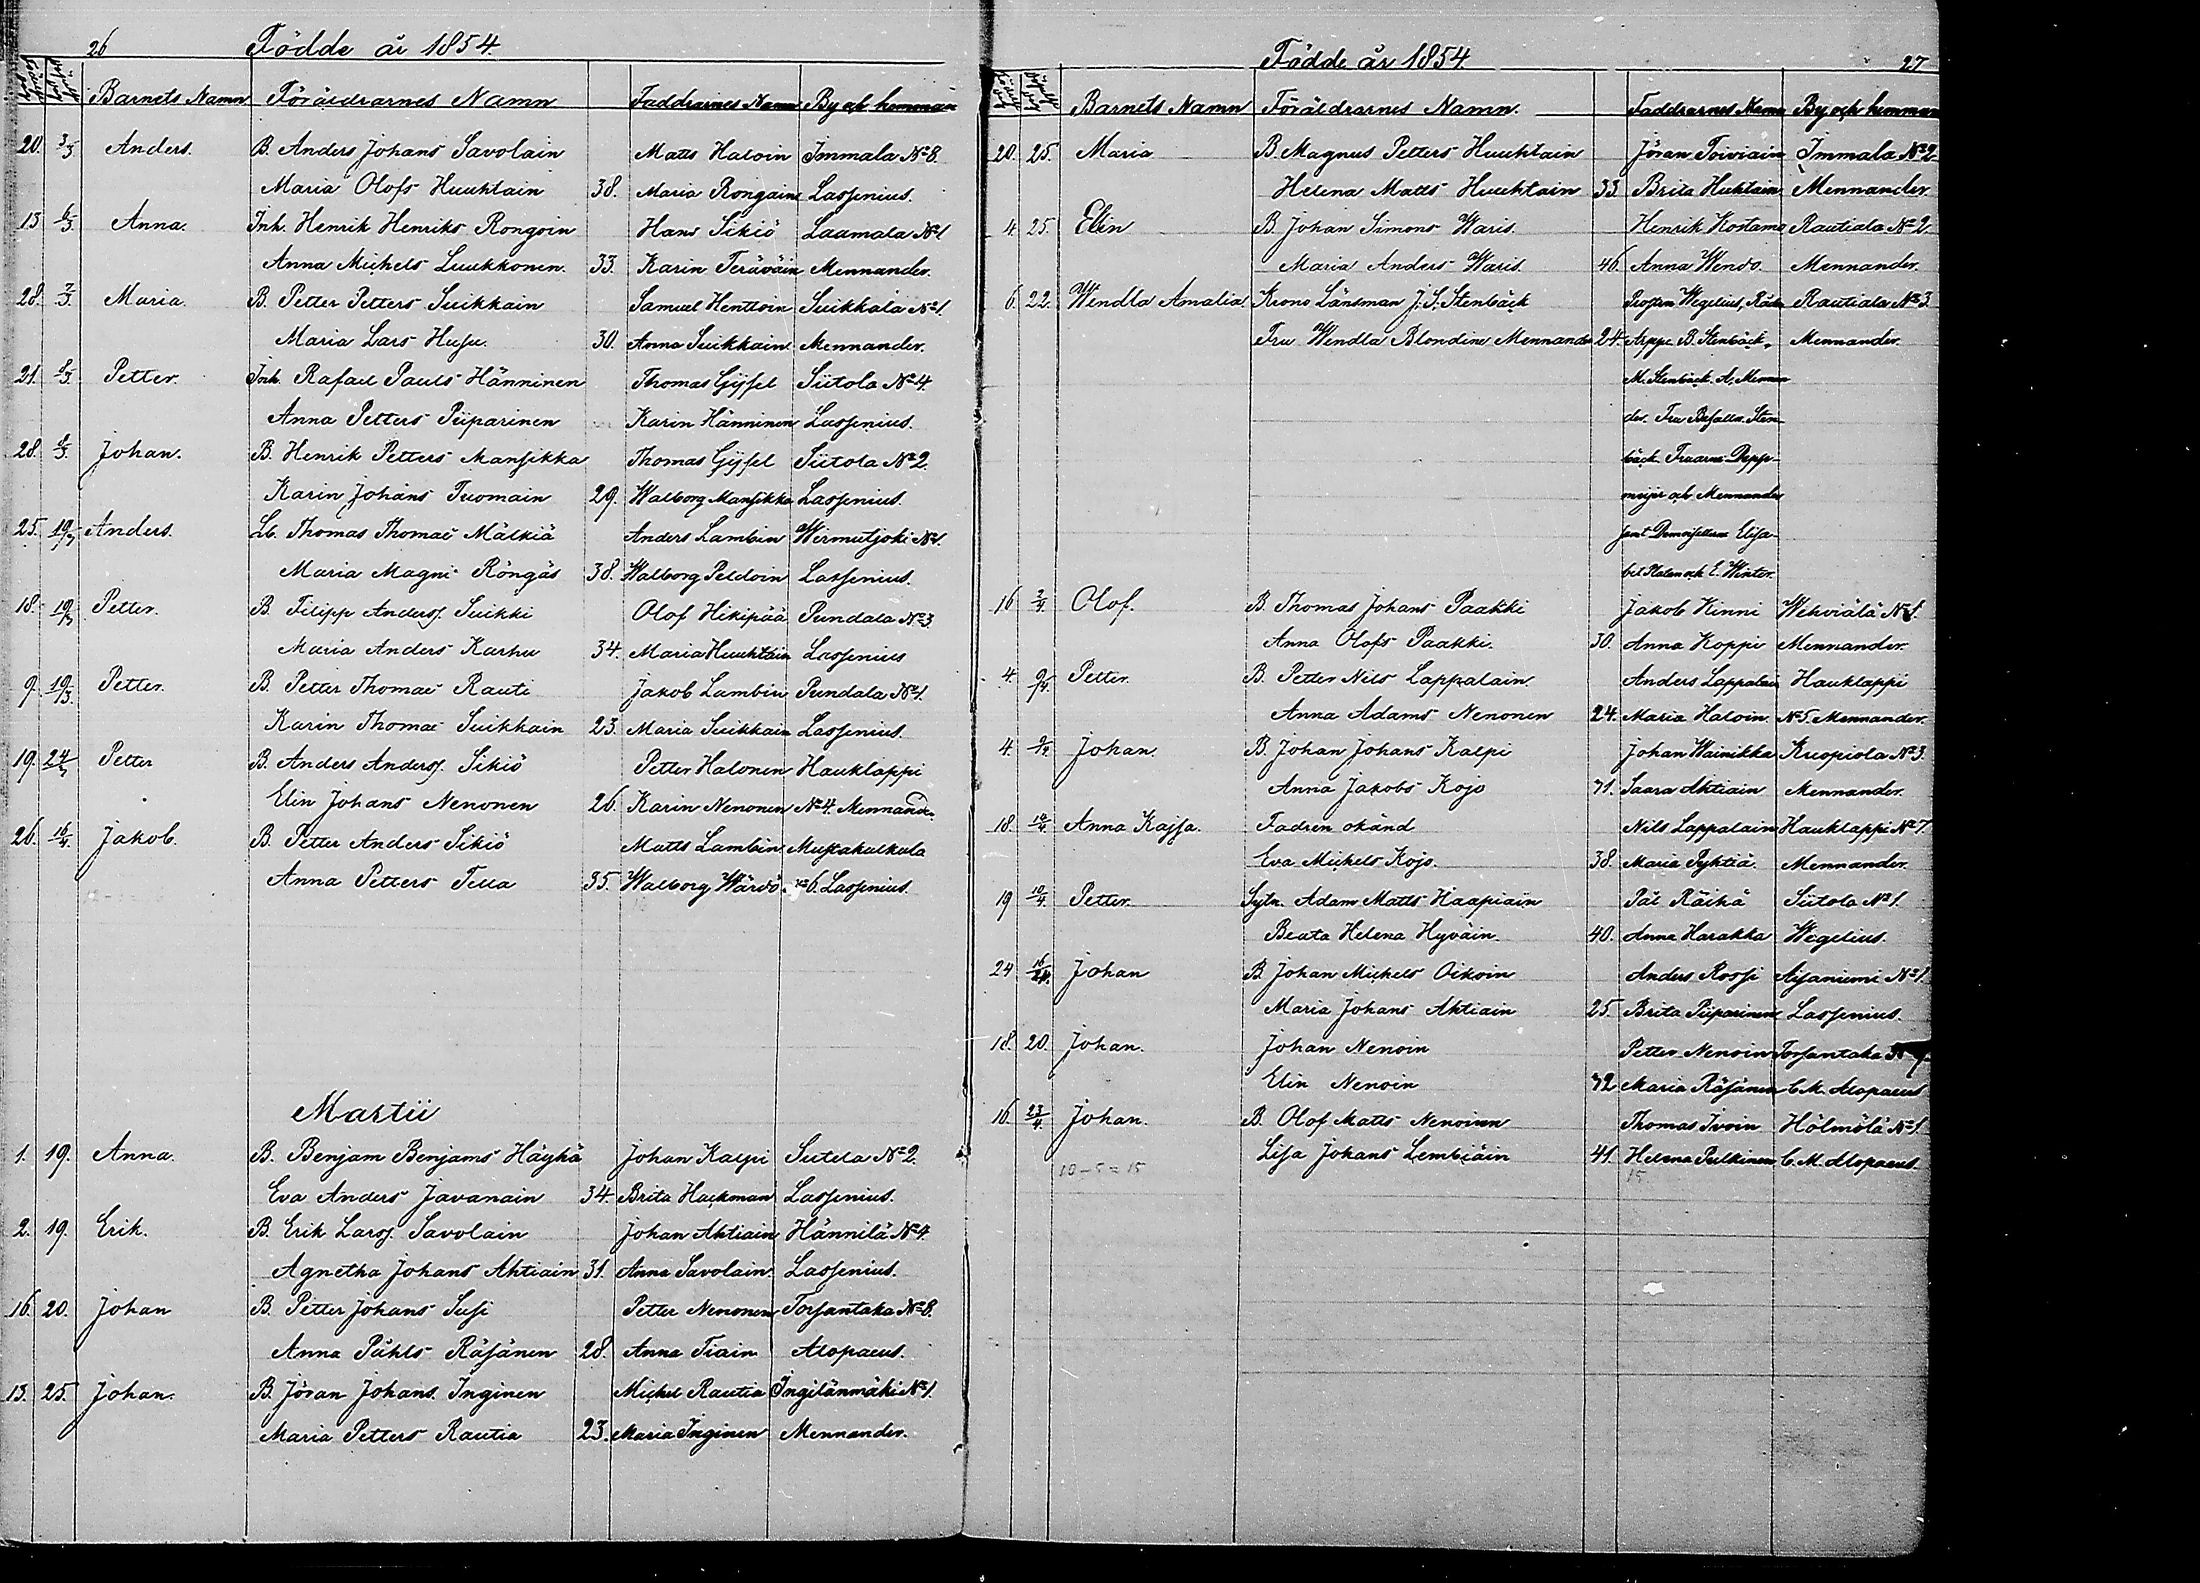 26 Födde år 1854.
Barnets Namn Föräldrarnes Namn Faddrarnes Namn By och hemman
20. 3/3 Anders. B. Anders Johans Savolain Matts Haloin Immala No 8.
Maria Olofs Huuhtain 38. Maria Rongain Lassenius.
13. 6/3. Anna. Inh. Henrik Henriks Rongoin Hans Sikiö Laamala No 1
Anna Michels Luukkonen. 33. Karin Teräväin Mennander.
28. 7/3. Maria. B. Petter Petters Suikkain Samuel Henttoin Suikkala No 1.
Maria Lars Husu. 30. Anna Suikkain Mennander.
21. /3. Petter. Inh. Rafael Pauls Hänninen Thomas Gijsel Siitola No 4
Anna Petters Piiparinen Karin Hänninen Lassenius.
28. /3. Johan. B. Henrik Petters Mansikka Thomas Gijsel Siitola No 2.
Karin Johans Tuomain 29. Walborg Mansikka Lassenius.
25. 19/3 Anders. Lb. Thomas Thomae Mälkiä Anders Lambin Wirmutjoki No 1.
Maria Magni Röngäs 38. Walborg Peldoin Lassenius.
18. 19/3 Petter. B Filipp Anders. Suikki Olof Hikipää Pundala No 3.
Maria Anders Karhu 34. Maria Huuhtain Lassenius
9. 19/3. Petter. B. Petter Thomae Rauti Jakob Lambin Pundala No 1.
Karin Thomae Suikkain 23. Maria Suikkain Lassenius.
19. 24/3 Petter B. Anders Anders. Sikiö Petter Halonen Hauklappi
Elin Johans Nenonen 26. Karin Nenonen No 4. Mennander
26. 16/4. Jakob. B. Petter Anders Sikiö Matts Lambin Mustakulkula
Anna Petters Tella 35. Walborg Wärdö No 6. Lassenius.
Martii
1. 19. Anna. B. Benjam Benjams Häyhä Johan Kalpi Sutela No 2.
Eva Anders Javanain 34. Brita Hackman Lassenius.
2. 19. Erik. B. Erik Lars. Savolain Johan Ahtiain Hännilä No 4.
Agnetha Johans Ahtiain 31. Anna Savolain Lassenius.
16. 20. Johan B. Petter Johans Susi Petter Nenonen Torsantaka No 8.
Anna Påhls Räsänen 28. Anna Tiain Alopaeus.
13. 25. Johan. B. Jöran Johans. Inginen Michel Rautia Ingilänmäki No 1.
Maria Petters Rautia 23. Maria Inginen Mennander.
Födde år 1854. 27
Barnets Namn Föräldrarnes Namn. Faddrarnes Namn By och hemman
20. 25. Maria B. Magnus Petters Huuhtain Jöran Toiviain Immala No 2
Helena Matts Huuhtain 33. Brita Huhtain Mennander.
4. 25. Elin B. Johan Simons Waris. Henrik Kostamo Rautiala No 2.
Maria Anders Waris. 46. Anna Wendo Mennander.
6. 22. Wendla Amalia. Krono Länsman J. S. Stenbäck Wegelius, Rautiala No 3.
Fru Wendla Blondine Mennander 24. Arppe. B. Stenbäck, Mennander.
M. Stenbäck. A. Mennan
der. Fru Sten
bäck. Fruarne Popp-
meijer och Mennander
samt Elisa-
bet och E. Winter.
16 2/4. Olof. B. Thomas Johans Paakki Jakob Kinni Wehviälä No 1.
Anna Olofs Paakki. 30. Anna Koppi Mennander.
4. 9/4. Petter. B. Petter Nils Lappalain. Anders Lappalain Hauklappi
Anna Adams Nenonen 24. Maria Haloin No 5. Mennander.
4. 9/4. Johan. B. Johan Johans Kalpi Johan Wainikka Kuopiola No 3.
Anna Jakobs Kojo 31. Saara Ahtiain Mennander.
18. /4. Anna Kajsa. Fadren okänd Nils Lappalain Hauklappi No 7
Eva Michels Kojo 38. Maria Pyhtiä. Mennander.
19 10/4. Petter. Sytn. Adam Matts Haapiain Pål Räihä Siitola No 1.
Beata Helena Hyväin. 40. Anna Harakka Wegelius.
24 16/4. Johan B. Johan Michels Oikoin Anders Rossi Äijäniemi No 1.
Maria Johans Ahtiain 25. Brita Piiparinen Lassenius.
18. 20. Johan. Johan Nenoin Petter Nenoin Torsantaka
Elin Nenoin 32 Maria Räsänen C. M. Alopaeus
16. 23/4 Johan. B. Olof Matts Nenoinen Thomas Ivoin Hölmölä No 1.
Lisa Johans Lembiäin 41. Helena Pulkinen C. M. Alopaeus.
10-5=15 15